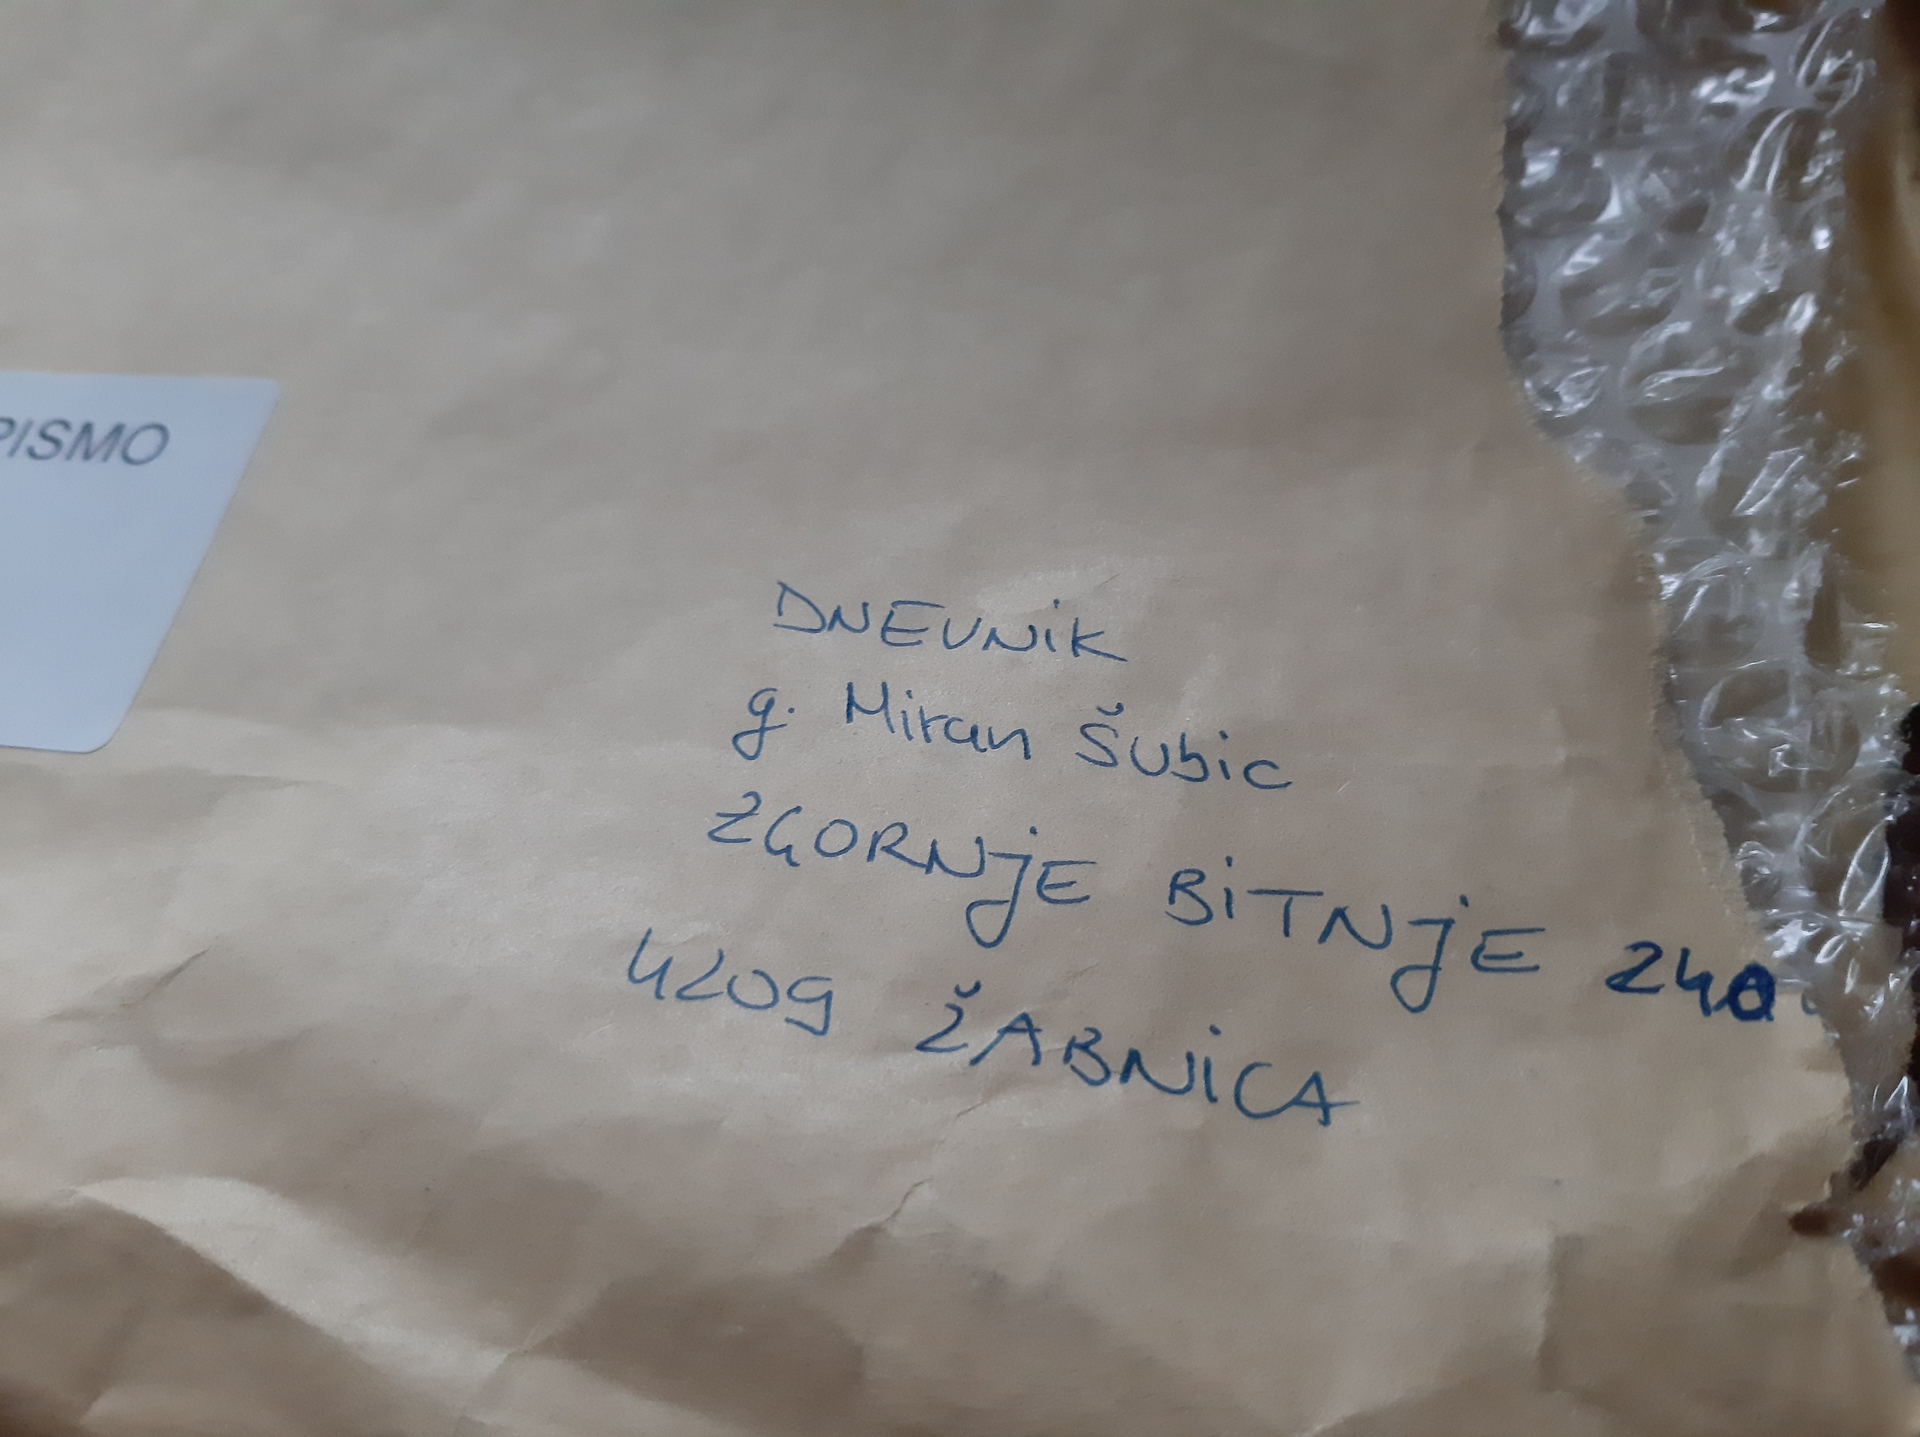 PISMO
DNEVNiK
g. Miran Šubic
ZGORNJE BiTNJE 240
4209 ŽABNiCA